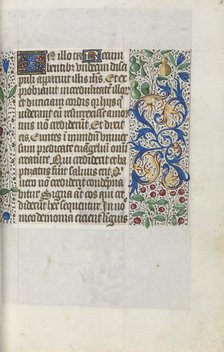 In illo tẽ Recum
bentibꝰ undecim disci
pulis apparuit illis ihs. Et ex
probravit incredulitatẽ illoꝝ
et duriciam cordis qui hiis q̃
viderant eũ resurrexisse a mor
tuis non crediderũt Et dixit
eis. Euntes in mundũ univer
sum predicate euangeliũ omi
creature. Qui crediderit et ba
ptizatus fuit salvus erit. Q̃
vero nõ crediderit condemna
bitur Signa aũt eos qui cre
diderint hec sequentur. In no
mine demonia eicient linguis